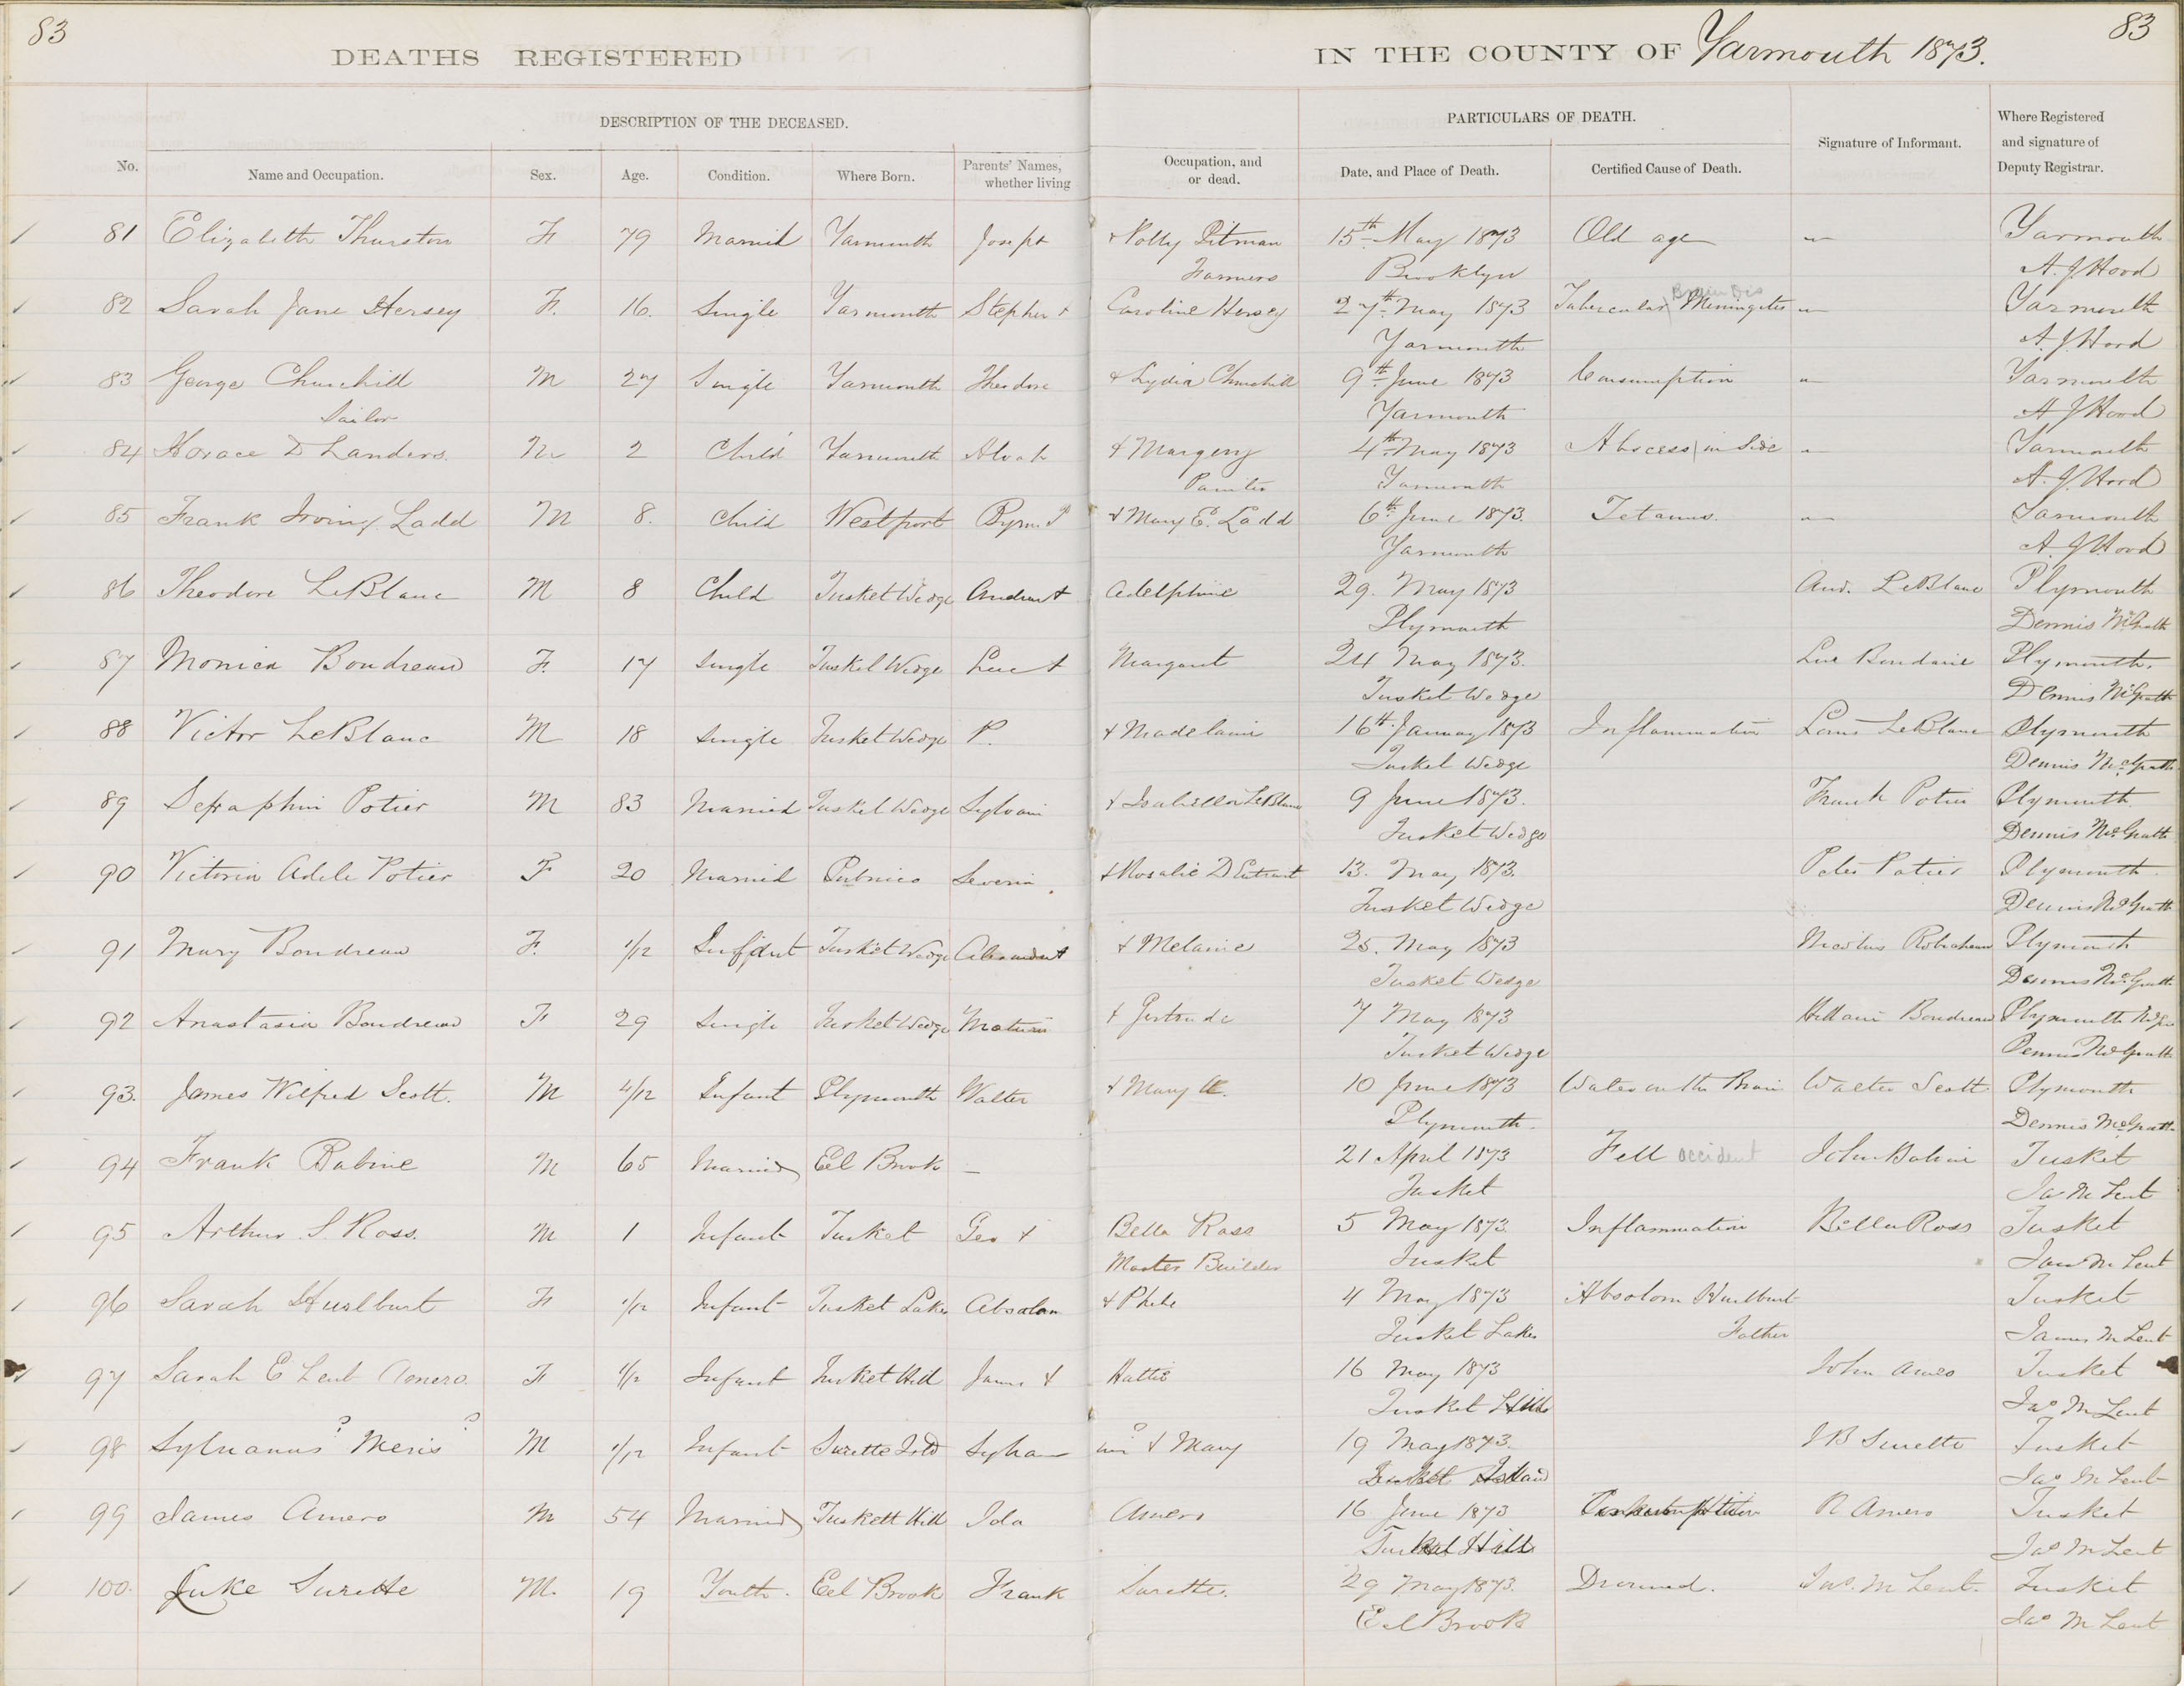 83
83
DEATHS REGISTERED IN THE COUNTY OF Yarmouth 1873.
DESCRIPTION OF THE DECEASED. PARTICULARS OF DEATH.
No. Name and Occupation. Sex. Age. Condition. Where Born. Parents' Names, whether living Occupation, and or dead. Date, and Place of Death. Certified Cause of Death. Signature of Informant. Where Registered and signature of Deputy Registrar.
81 Elizabeth Thurston F 79 Married Yarmouth Joseph + Polly Pitman 15th May 1873 Old age — Yarmouth
Farmers Brooklyn A. J Hood
Brain Dis
82 Sarah Jane Hersey F. 16. Single Yarmouth Stephen + Caroline Hersey 27th May 1873 Tubercular Meningites — Yarmouth
Yarmouth A. J Hood
83 George Churchill M 27 Single Yarmouth Theodore + Lydia Churchill 9th June 1873 Consumption — Yarmouth
Sailor Yarmouth A J Hood
84 Horace D Landers. M 2 Child Yarmouth Alvah + Margery 4th May 1873 Abscess in Side — Yarmouth
Painter Yarmouth A. J. Hood
85 Frank Irving Ladd M 8. Child Westport Byrn. P + Mary E. Ladd 6th June 1873. Tetanus. — Yarmouth
Yarmouth A. J Hood
86 Theodore LeBlanc M 8 Child Tusket Wedge Andrew + Adelphine 29. May 1873 And. LeBlanc Plymouth
Plymouth Dennis McGrath
87 Monica Boudreau F. 17 Single Tusket Wedge Luc + Margaret 24 May 1873. Luc Boudaine Plymouth.
Tusket Wedge Dennis McGrath
88 Victor LeBlanc M 18 Single Tusket Wedge P. + Madelaine 16th January 1873 Inflammation Louis LeBlanc Plymouth
Tusket Wedge Dennis McGrath
89 Seraphin Potier M 83 Married Tusket Wedge Sylvain + Isabella LeBlanc 9 June 1873. Frank Potier Plymouth
Tusket Wedge Dennis McGrath
90 Victoria Adele Potier F 20 Married Pubnico Severin. + Rosalie D Entremt 13. May 1873. Peter Potier Plymouth.
Tusket Wedge Dennis McGrath
91 Mary Boudreau F. 1/12 Infant Tusket Wedge Alexander + + Melanie 25. May 1873 Robicheau Plymouth
Tusket Wedge Dennis McGrath
92 Anastasia Boudreau F 29 Single Tusket Wedge Maturin + Gertrude 7 May 1873 Hillaire Boudreau Plymouth
Tusket Wedge Dennis McGrath
93. James Wilfred Scott. M 4/12 Infant Plymouth Walter + Mary A. 10 June 1873 Water on the Brain Walter Scott. Plymouth
Plymouth. Dennis McGrath
94 Frank Babine M 65 Married Eel Brook — 21 April 1873 Fell accident John Babine Tusket
Tusket Jas M Lent
95 Arthur S. Ross. M 1 Infant Tusket Geo + Bella Ross 5 May 1873 Inflammation Bella Ross Tusket
Master Builder Tusket James M Lent
96 Sarah Hurlburt F 1/12 Infant Tusket Lakes Absolom + Phebe 4 May 1873 Absolom Hurlburt Tusket
Tusket Lakes Father James M Lent
97 Sarah E Lent Amero. F 1/12 Infant Tusket Hill James + Hattie 16 May 1873 John Amero Tusket
Tusket Hills Jas M Lent
98 Sylvanus? Meris? M 1/12 Infant Surette Isld Sylvan us? + Mary 19 May 1873. J B Surette Tusket
Island Jas M Lent
99 James Amero M 54 Married Tuskett Hill Ida Amero 16 June 1873 Consumption R Amero Tusket
Tusket Hill Jas M Lent
100. Luke Surette M. 19 Youth. Eel Brook Frank Surette. 29 May 1873. Drowned. Jas. M Lent. Tusket
Eel Brook Jas M Lent